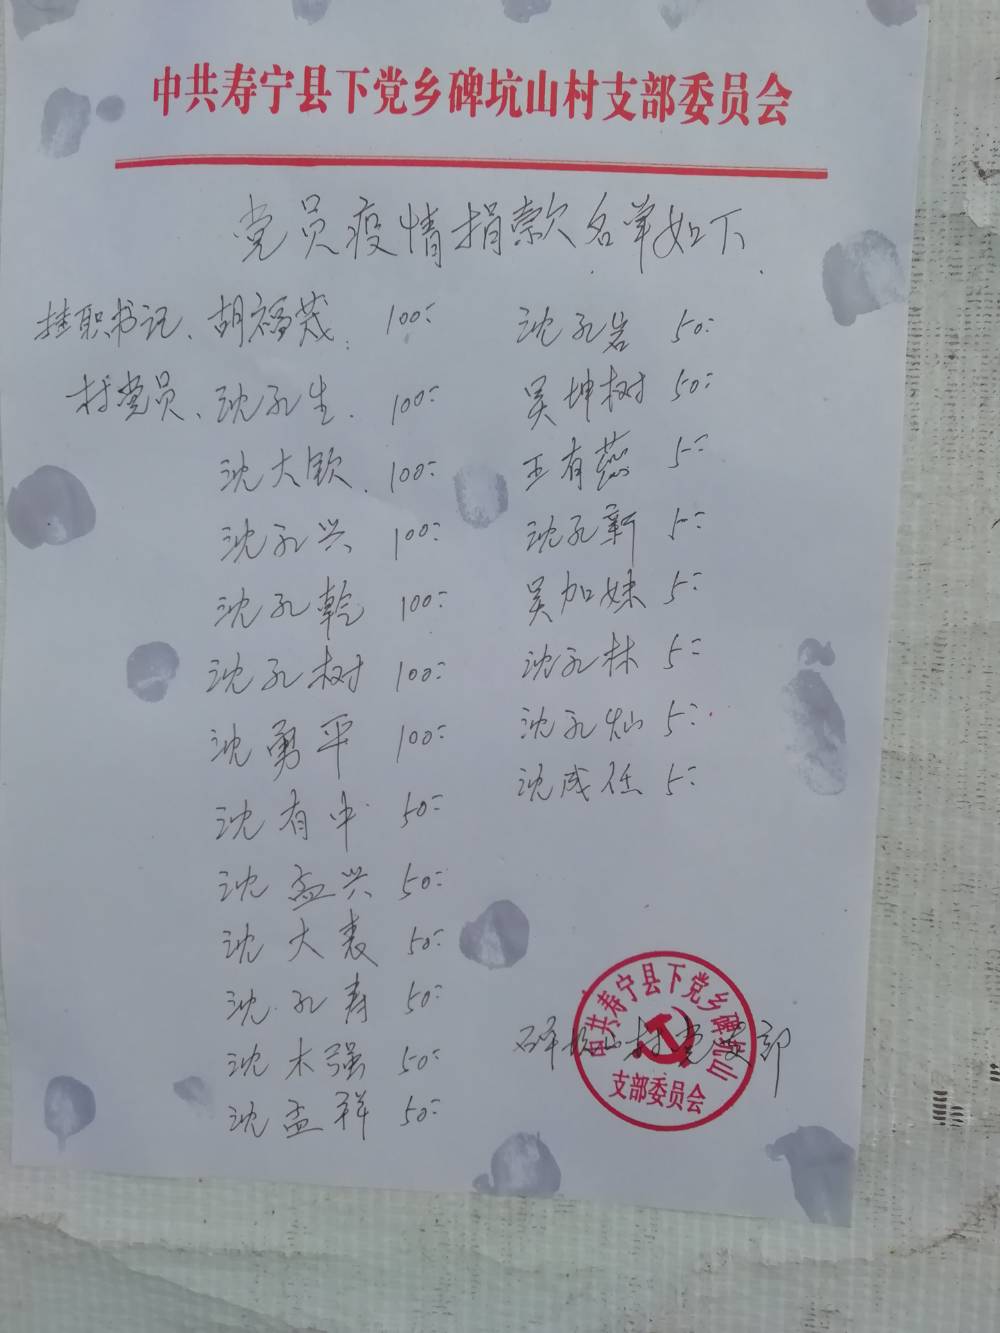 中共寿宁县下党乡碑坑山村支部委员会
党员疫情捐款名单如下
挂职书记、胡福茂 100
村党员、沈孔生 100
沈大钦 100
沈孔兴 100
沈孔乾 100
沈孔树 100
沈勇平 100
沈有中 50
沈孟兴 50
沈大表 50
沈孔寿 50
沈木强 50
沈孟祥 50
沈孔岩 50
吴坤树 50
王有燕 5
沈孔新 5
吴加妹 5
沈孔林 5
沈孔灿 5
沈成任 5
碑坑山村党支部
中共寿宁县下党乡碑坑山
支部委员会